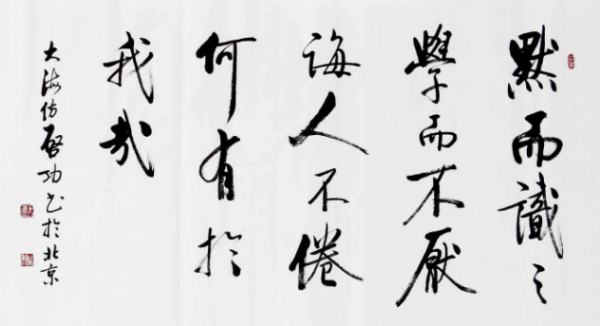 默而識之
學而不厭
誨人不倦
何有於
我哉
大海仿啓功书於北京